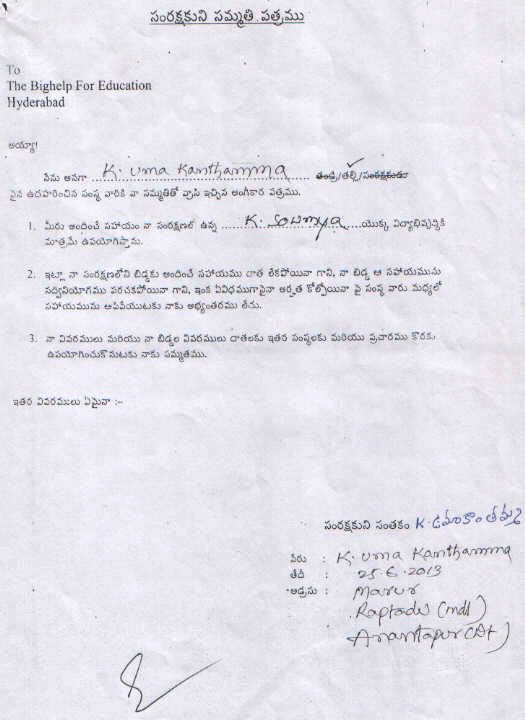 సంరక్షకుని సమ్మతి పత్రము
To
The Bighelp For Education
Hyderabad
అయ్యా!
నేను అనగా K. Uma Kanthamma తండ్రి/తల్లి/సంరక్షకుడు
పైన ఉదహరించిన సంస్థ వారికి నా సమ్మతితో వ్రాసి ఇచ్చిన అంగీకార పత్రము.
1. మీరు అందించే సహాయం నా సంరక్షణలో ఉన్న K. Sowmya యొక్క విద్యాభివృద్ధికి
మాత్రమే ఉపయోగిస్తాను.
2. ఇట్లా నా సంరక్షణలోని బిడ్డకు అందించే సహాయము దాత లేకపోయినా గాని, నా బిడ్డ ఆ సహాయమును
సద్వినియోగము పరచకపోయినా గాని, ఇంక ఏవిధముగానైనా అర్హత కోల్పోయినా పై సంస్థ వారు మధ్యలో
సహాయమును ఆపివేయుటకు నాకు అభ్యంతరము లేదు.
3. నా వివరములు మరియు నా బిడ్డల వివరములు దాతలకు ఇతర సంస్థలకు మరియు ప్రచారము కొరకు
ఉపయోగించుకొనుటకు నాకు సమ్మతము.
ఇతర వివరములు ఏమైనా :-
సంరక్షకుని సంతకం K. ఉమాకాంతమ్మ
పేరు : K. Uma Kanthamma
తేదీ : 25.6.2013
అడ్రసు : Marur
Raptadu (mdl)
Anantapur (Dt)